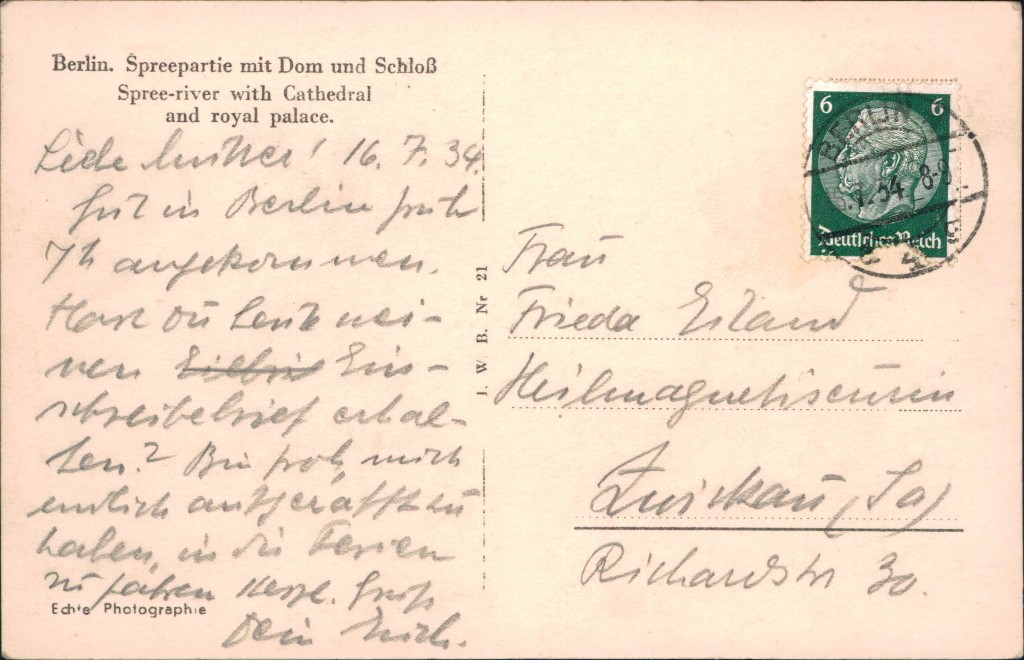 Berlin. Spreepartie mit Dom und Schloß
Spree-river with Cathedral
and royal palace.
Liebe Mutter! 16. 7. 34.
Gut in Berlin früh
7h angekommen.
Hast du heut mei-
nen Eilbrief Ein-
schreibebrief erhal-
ten? Bin froh, mich
endlich aufgerafft zu
haben, in die Ferien
zu fahren Herzl. Gruß
Dein Erich.
Echte Photographie
J. W. B. Nr 21
6 6
Deutsches Reich
BERLIN
7.34 8-9
Frau
Frieda Eiland
Heilmagnetiseurin
Zwickau (Sa)
Richardstr 30.